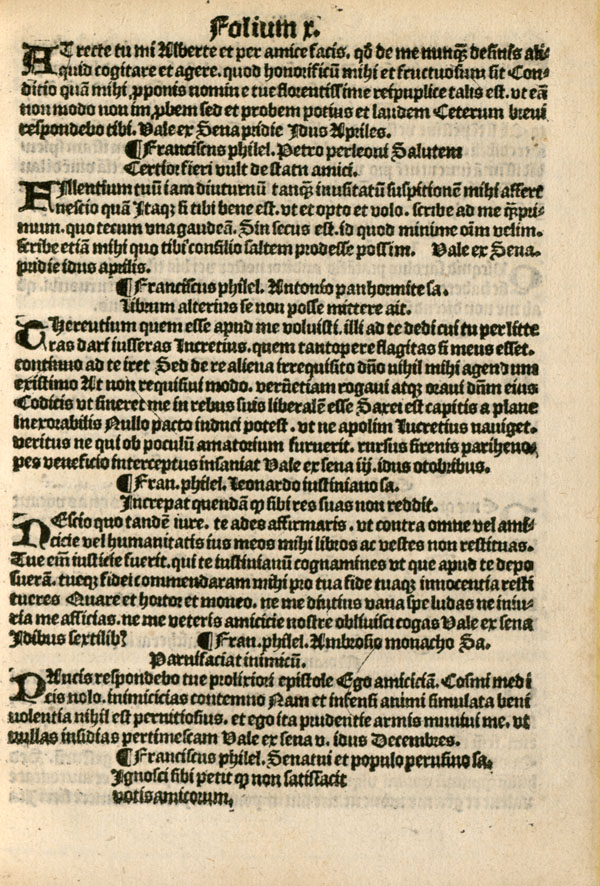 Folium x.
AT recte tu mi Alberte et per amice facis. qđ de me nunqꝫ desinis ali-
quid cogitare et agere. quod honorificū mihi et fructuosum sit Con-
ditio quā mihi ꝓponis nomine tue florentissime respuplice talis est. vt eā
non modo non imꝓbem sed et probem potius et laudem Ceterum breui
respondebo tibi. Vale ex Sena pridie Idus Apriles.
¶ Franciscus philel. Petro perleoni Salutem
Certior fieri vult de statu amici.
SIlentium tuū iam diuturnū tanqꝫ inusitatū suspitionem mihi affert
nescio quā Itaqꝫ si tibi bene est. vt et opto et volo. scribe ad me qꝫpri-
mum. quo tecum vna gaudeam. Sin secus est. id quod minime oīm velim.
scribe etiā mihi quo tibi consilio saltem prodesse possim. Vale ex Sena.
pridie idus aprilis.
¶ Franciscus philel. Antonio panhormite sa.
Librum alterius se non posse mittere ait.
CHerentium quem esse apud me voluisti. illi ad te dedi cui tu per litte
ras dari iusseras Lucretius. quem tantopere flagitas si meus esset.
continuo ad te iret Sed de re aliena irrequisito dño nihil mihi agendum
existimo At non requisiui modo. verūetiam rogaui atqꝫ oraui dñm eius
Codicis vt sineret me in rebus suis liberalē esse Saxei est capitis a plane
inexorabilis Nullo pacto induci potest. vt ne apolim Lucretius nauiget.
veritus ne qui ob poculū amatorium furuerit. rursus sirenis parthenο-
pes veneficio interceptus insaniat Vale ex sena iij. idus otobribus.
¶ Fran. philel. Leonardo iustiniano sa.
Increpat quendā ꝙ sibi res suas non reddit.
NEscio quo tandē iure. te ades affirmaris. vt contra omne vel ami-
cicie vel humanitatis ius meos mihi libros ac vestes non restituas.
Tue em̄ iusticie fuerit. qui te iustinianū cognamines vt que apud te depo
suerā. tueqꝫ fidei commendaram mihi pro tua fide tuaqꝫ innocentia resti
tueres Quare et hortor et moneo. ne me diutius vana spe ludas ne iniu-
ria me afficias. ne me veteris amicicie nostre obliuisci cogas Vale ex sena
Idibus sextilibꝰ ¶ Fran. philel. Ambrosio monacho Sa.
Paruifaciat inimicū.
PAucis respondebo tue prolixiori epistole Ego amiciciā. Cosmi medi
cis nolo. inimicicias contemno Nam et infensi animi simulata beni
uolentia nihil est pernitiosius. et ego ita prudentie armis muniui me. vt
nullas insidias pertimescam Vale ex sena v. idus Decembres.
¶ Franciscus philel. Senatui et populo perusino sa.
Ignosci sibi petit ꝙ non satisfacit
votis amicorum.